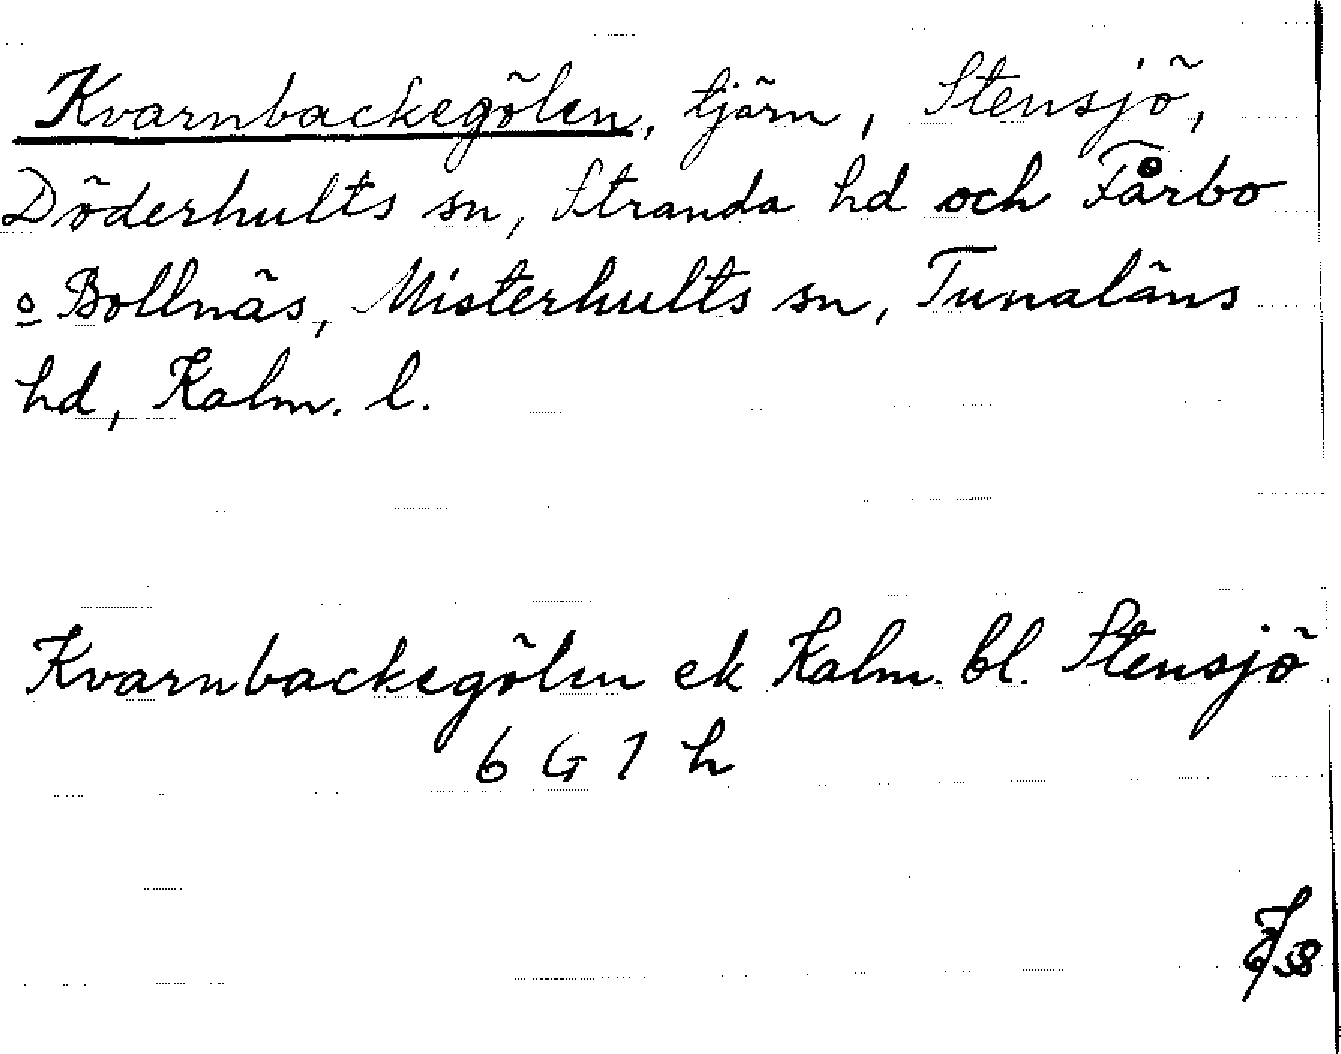 Kvarnbackegölen, tjärn, Stensjö,
Döderhults sn, Stranda hd och Fårbo
o Bollnäs, Misterhults sn, Tunaläns
hd, Kalm. l.
Kvarnbackegölen ek Kalm. bl. Stensjö
6 G 1 h